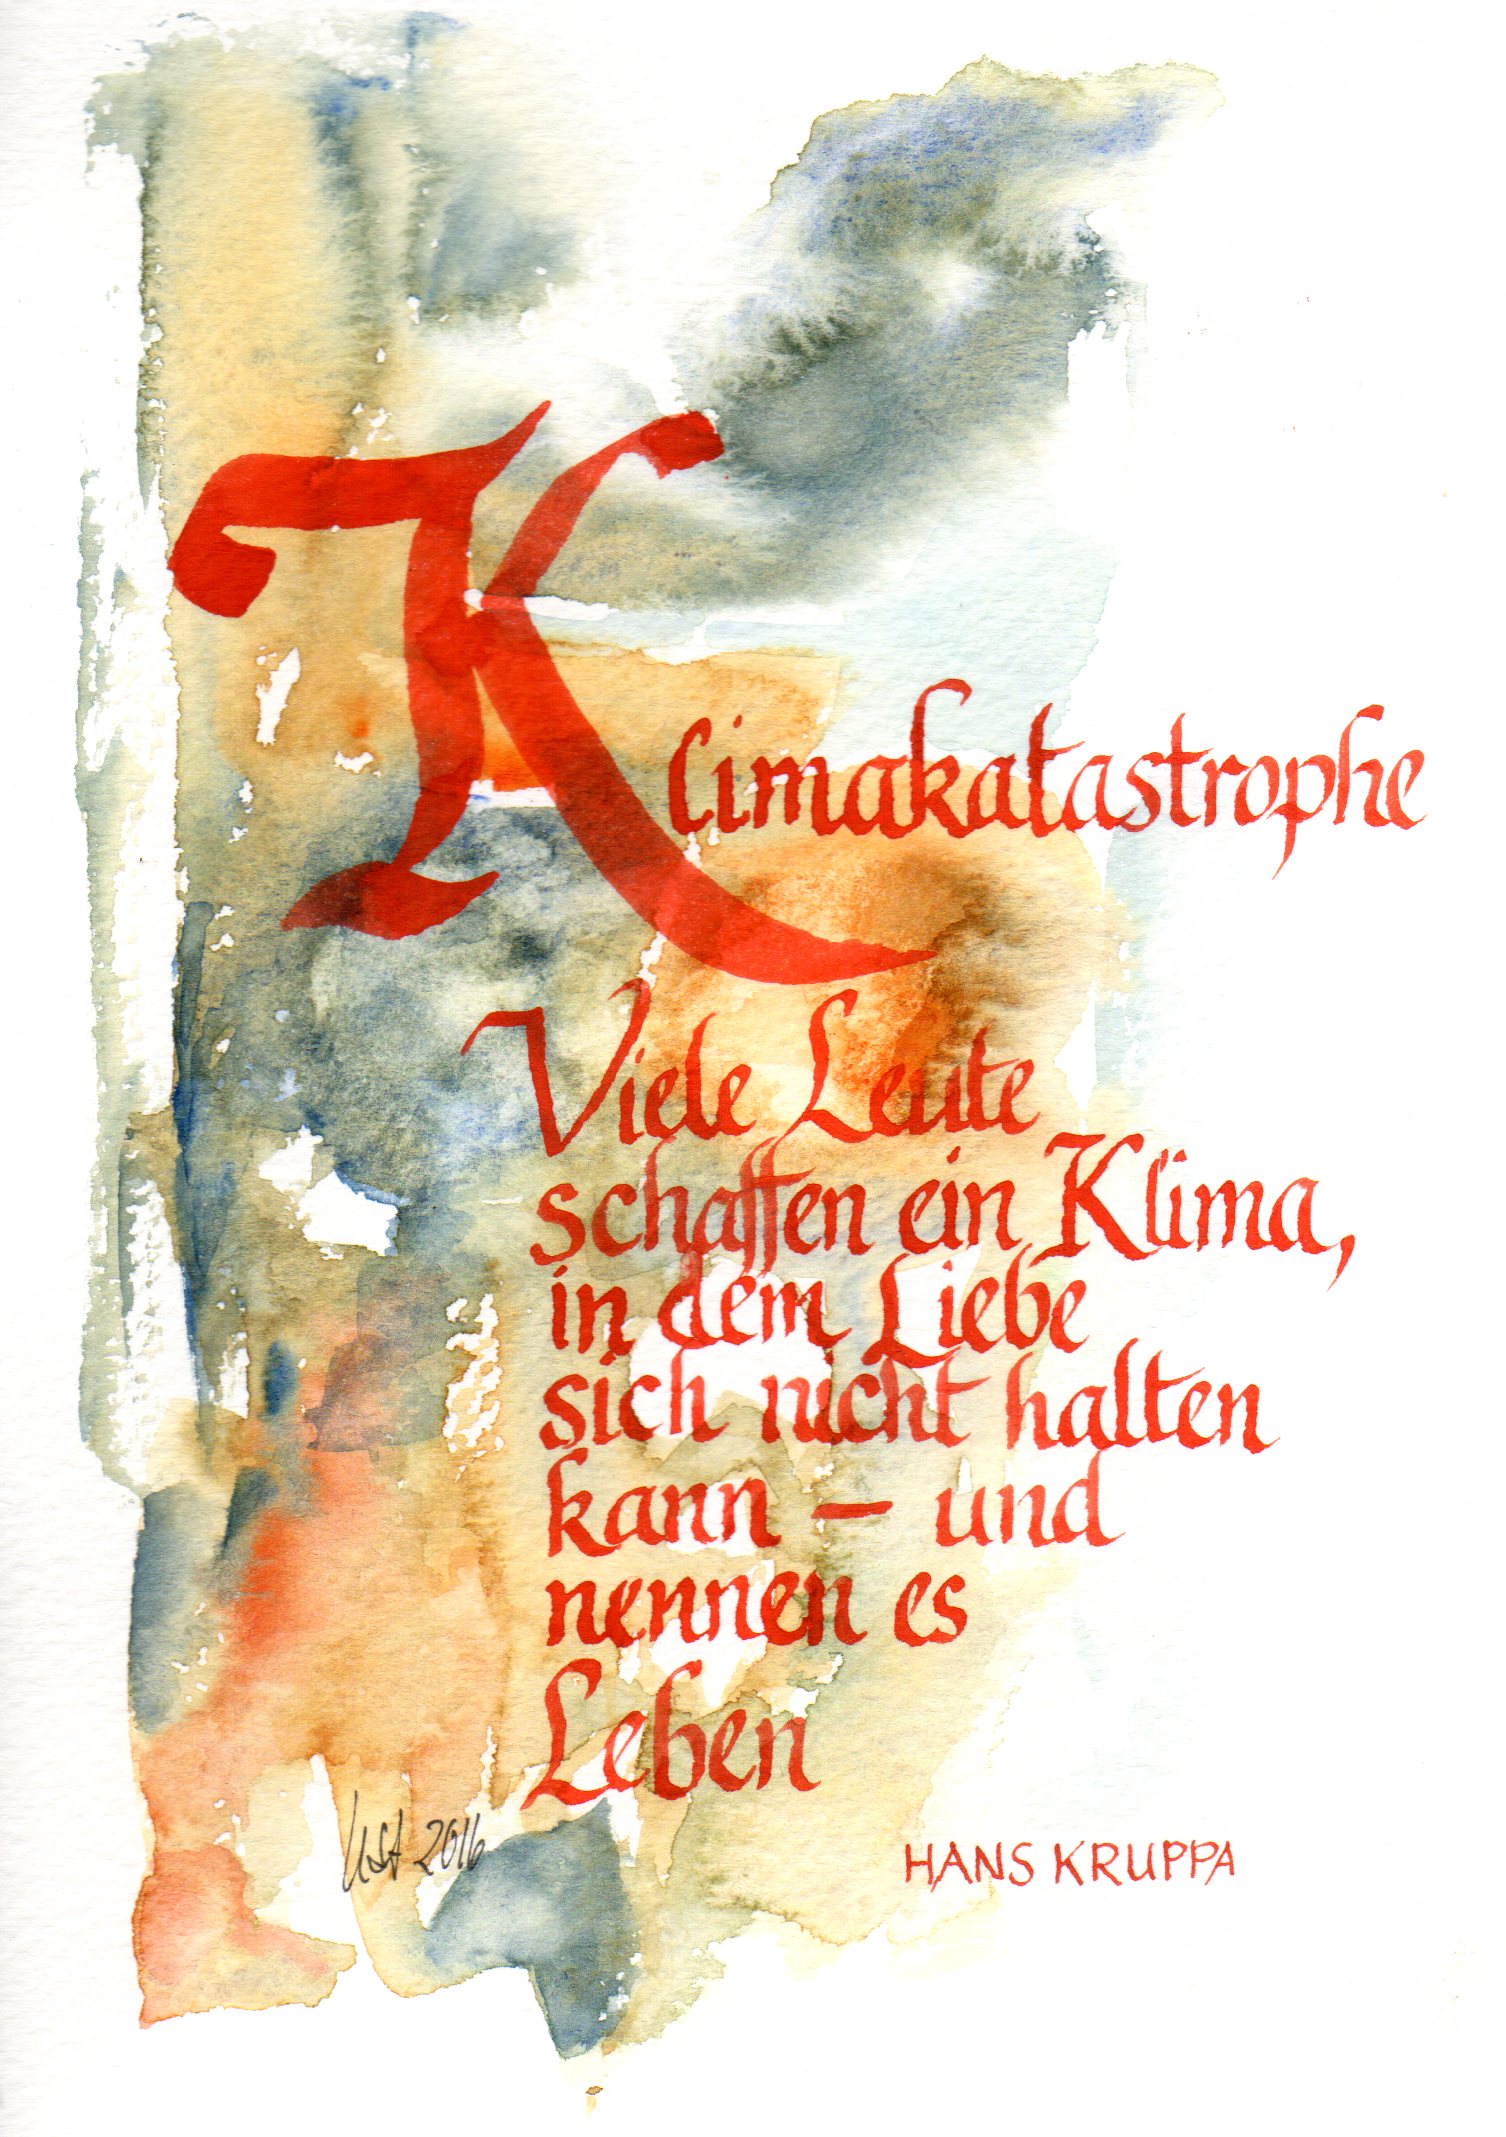 Klimakatastrophe
Viele Leute
schaffen ein Klima,
in dem Liebe
sich nicht halten
kann – und
nennen es
Leben
2016
HANS KRUPPA